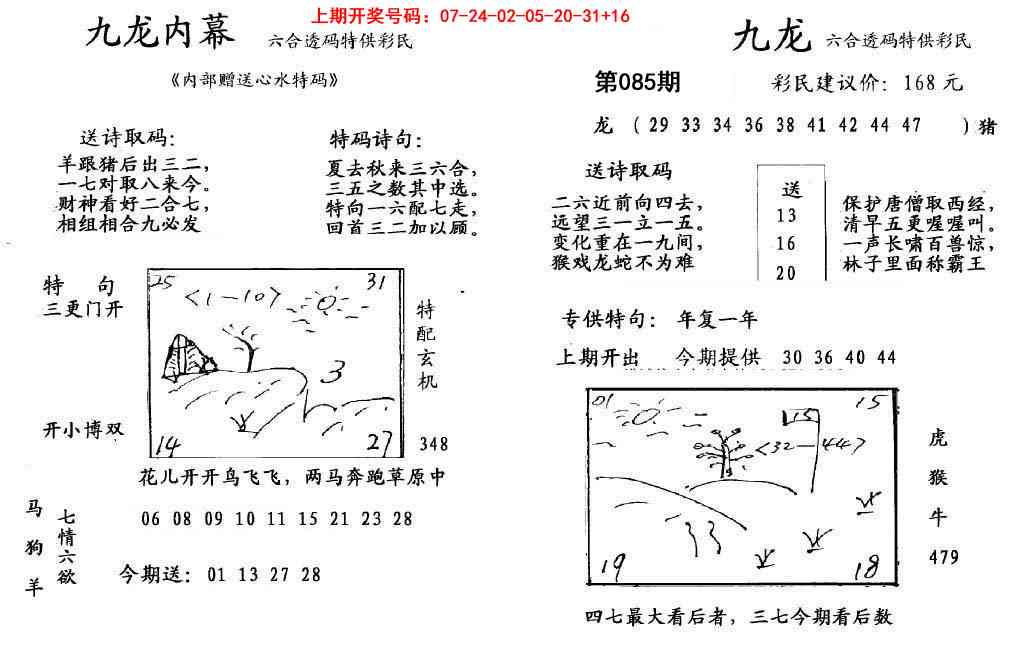 上期开奖号码：07-24-02-05-20-31+16
九龙内幕 六合透码特供彩民
《内部赠送心水特码》
送诗取码：
羊跟猪后出三二，
一七对取八来今。
财神看好二合七，
相组相合九必发
特码诗句：
夏去秋来三六合，
三五之数其中选。
特向一六配七走，
回首三二加以顾。
特 句
三更门开
开小博双
25 31
<1-10>
3
14 27
特配玄机
348
花儿开开鸟飞飞，两马奔跑草原中
马狗羊
七情六欲
06 08 09 10 11 15 21 23 28
今期送：01 13 27 28
九龙 六合透码特供彩民
第085期 彩民建议价：168元
龙 (29 33 34 36 38 41 42 44 47 )猪
送诗取码
二六近前向四去，
远望三一立一五。
变化重在一九间，
猴戏龙蛇不为难
送
13
16
20
保护唐僧取西经，
清早五更喔喔叫。
一声长啸百兽惊，
林子里面称霸王
专供特句： 年复一年
上期开出 今期提供 30 36 40 44
01 15
15
<32-44>
19 18
虎
猴
牛
479
四七最大看后者，三七今期看后数